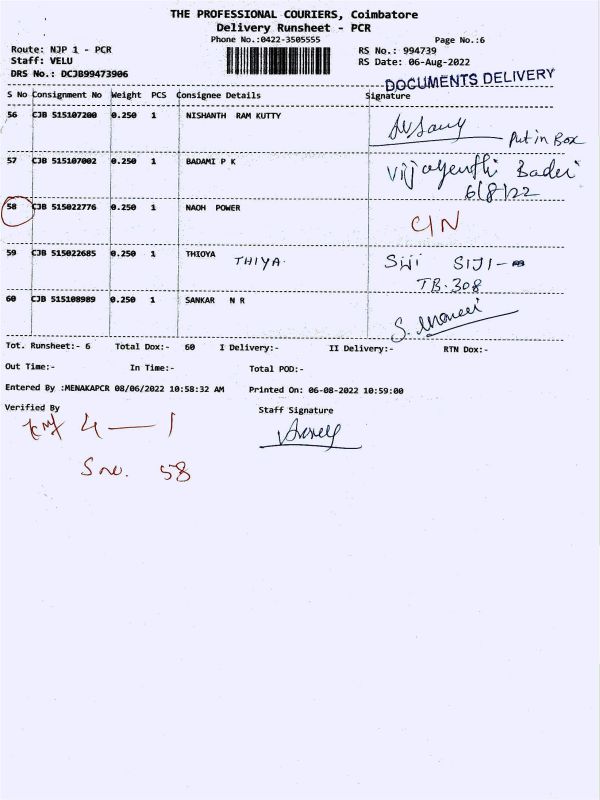 THE PROFESSIONAL COURIERS, Coimbatore
Delivery Runsheet - PCR
Phone No.:0422-3505555 Page No.:6
Route: NJP 1 - PCR RS No.: 994739
Staff: VELU RS Date: 06-Aug-2022
DRS No.: DCJB99473906
DOCUMENTS DELIVERY
S No Consignment No Weight PCS Consignee Details Signature
56 CJB 515107200 0.250 1 NISHANTH RAM KUTTY
Put in Box
57 CJB 515107002 0.250 1 BADAMI P K
6/8/22
58 CJB 515022776 0.250 1 NAOH POWER
C/N
59 CJB 515022685 0.250 1 THIOYA THIYA. Siji SIJI-
TB.308
60 CJB 515108989 0.250 1 SANKAR N R
Tot. Runsheet:- 6 Total Dox:- 60 I Delivery:- II Delivery:- RTN Dox:-
Out Time:- In Time:- Total POD:-
Entered By :MENAKAPCR 08/06/2022 10:58:32 AM Printed On: 06-08-2022 10:59:00
Verified By Staff Signature
4 — 1
S no. 58